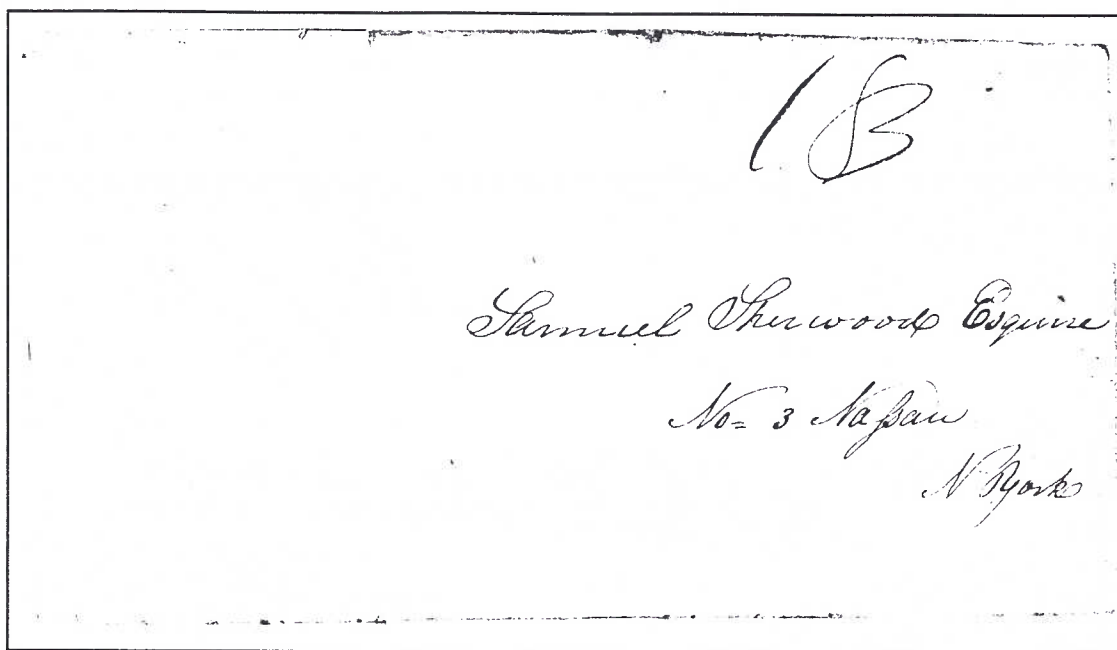 18
Samuel Sherwood Esquire
No= 3 Naſsau
N York